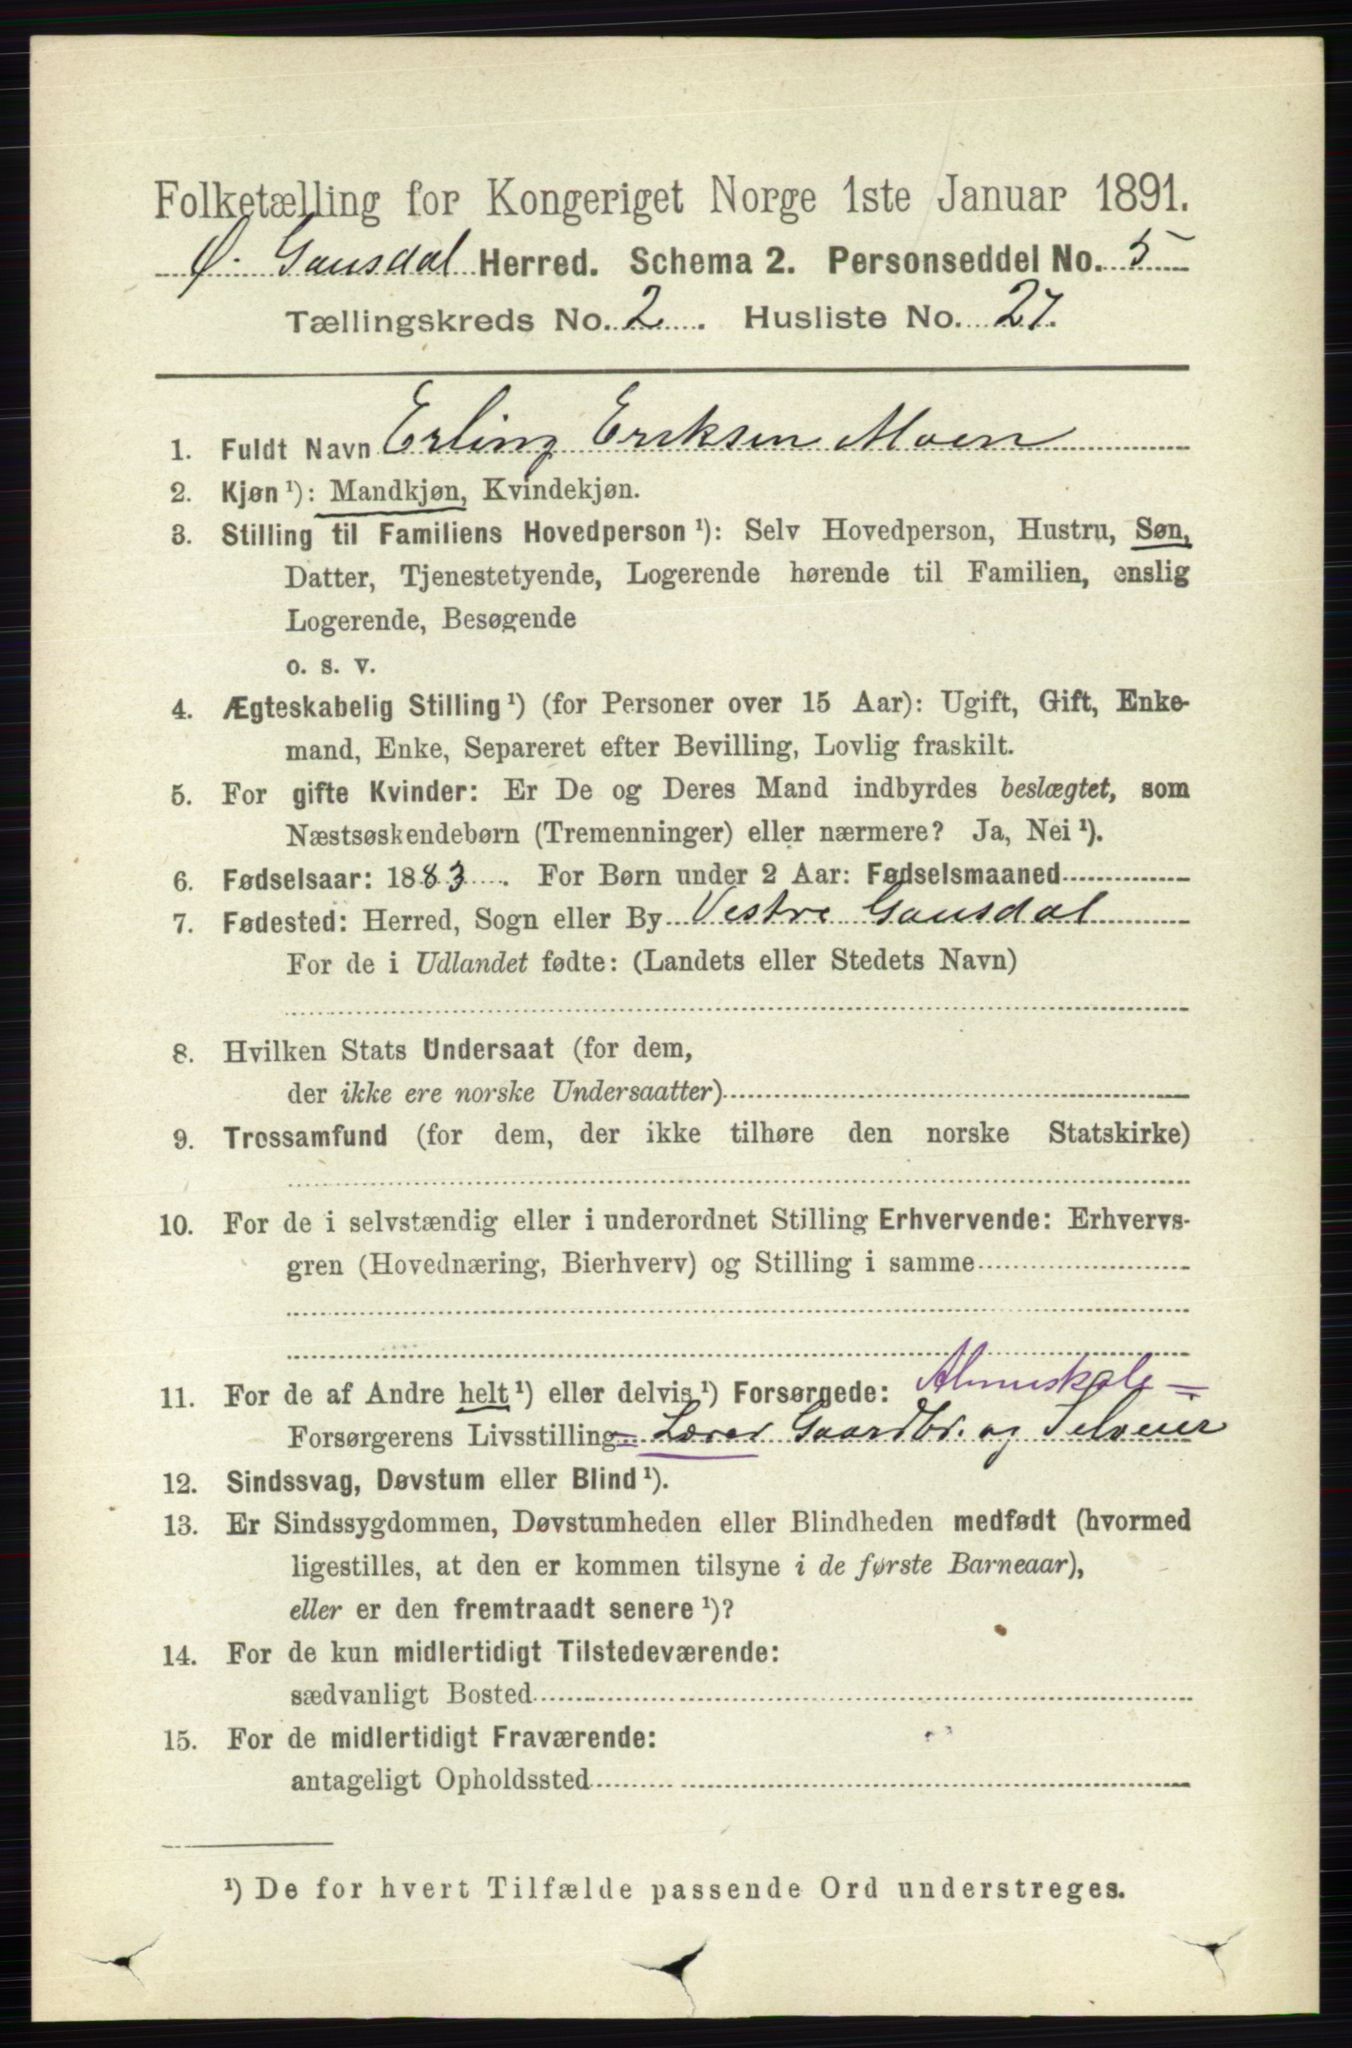 Folketælling for Kongeriget Norge 1ste Januar 1891.
Ø. Gausdal Herred. Schema 2. Personseddel No. 5
Tællingskreds No. 2. Husliste No. 27.
1. Fuldt Navn Erling Eriksen Moen
2. Kjøn ¹): Mandkjøn, Kvindekjøn.
3. Stilling til Familiens Hovedperson ¹): Selv Hovedperson, Hustru, Søn,
Datter, Tjenestetyende, Logerende hørende til Familien, enslig
Logerende, Besøgende
o. s. v.
4. Ægteskabelig Stilling ¹) (for Personer over 15 Aar): Ugift, Gift, Enke-
mand, Enke, Separeret efter Bevilling, Lovlig fraskilt.
5. For gifte Kvinder: Er De og Deres Mand indbyrdes beslægtet, som
Næstsøskendebørn (Tremenninger) eller nærmere? Ja, Nei ¹).
6. Fødselsaar: 1883. For Børn under 2 Aar: Fødselsmaaned
7. Fødested: Herred, Sogn eller By Vestre Gausdal
For de i Udlandet fødte: (Landets eller Stedets Navn)
8. Hvilken Stats Undersaat (for dem,
der ikke ere norske Undersaatter)
9. Trossamfund (for dem, der ikke tilhøre den norske Statskirke)
10. For de i selvstændig eller i underordnet Stilling Erhvervende: Erhvervs-
gren (Hovednæring, Bierhverv) og Stilling i samme
11. For de af Andre helt ¹) eller delvis ¹) Forsørgede: Almuskole =
Forsørgerens Livsstilling = Lærer Gaardbr. og Selveier
12. Sindssvag, Døvstum eller Blind ¹).
13. Er Sindssygdommen, Døvstumheden eller Blindheden medfødt (hvormed
ligestilles, at den er kommen tilsyne i de første Barneaar),
eller er den fremtraadt senere ¹)?
14. For de kun midlertidigt Tilstedeværende:
sædvanligt Bosted
15. For de midlertidigt Fraværende:
antageligt Opholdssted
¹) De for hvert Tilfælde passende Ord understreges.